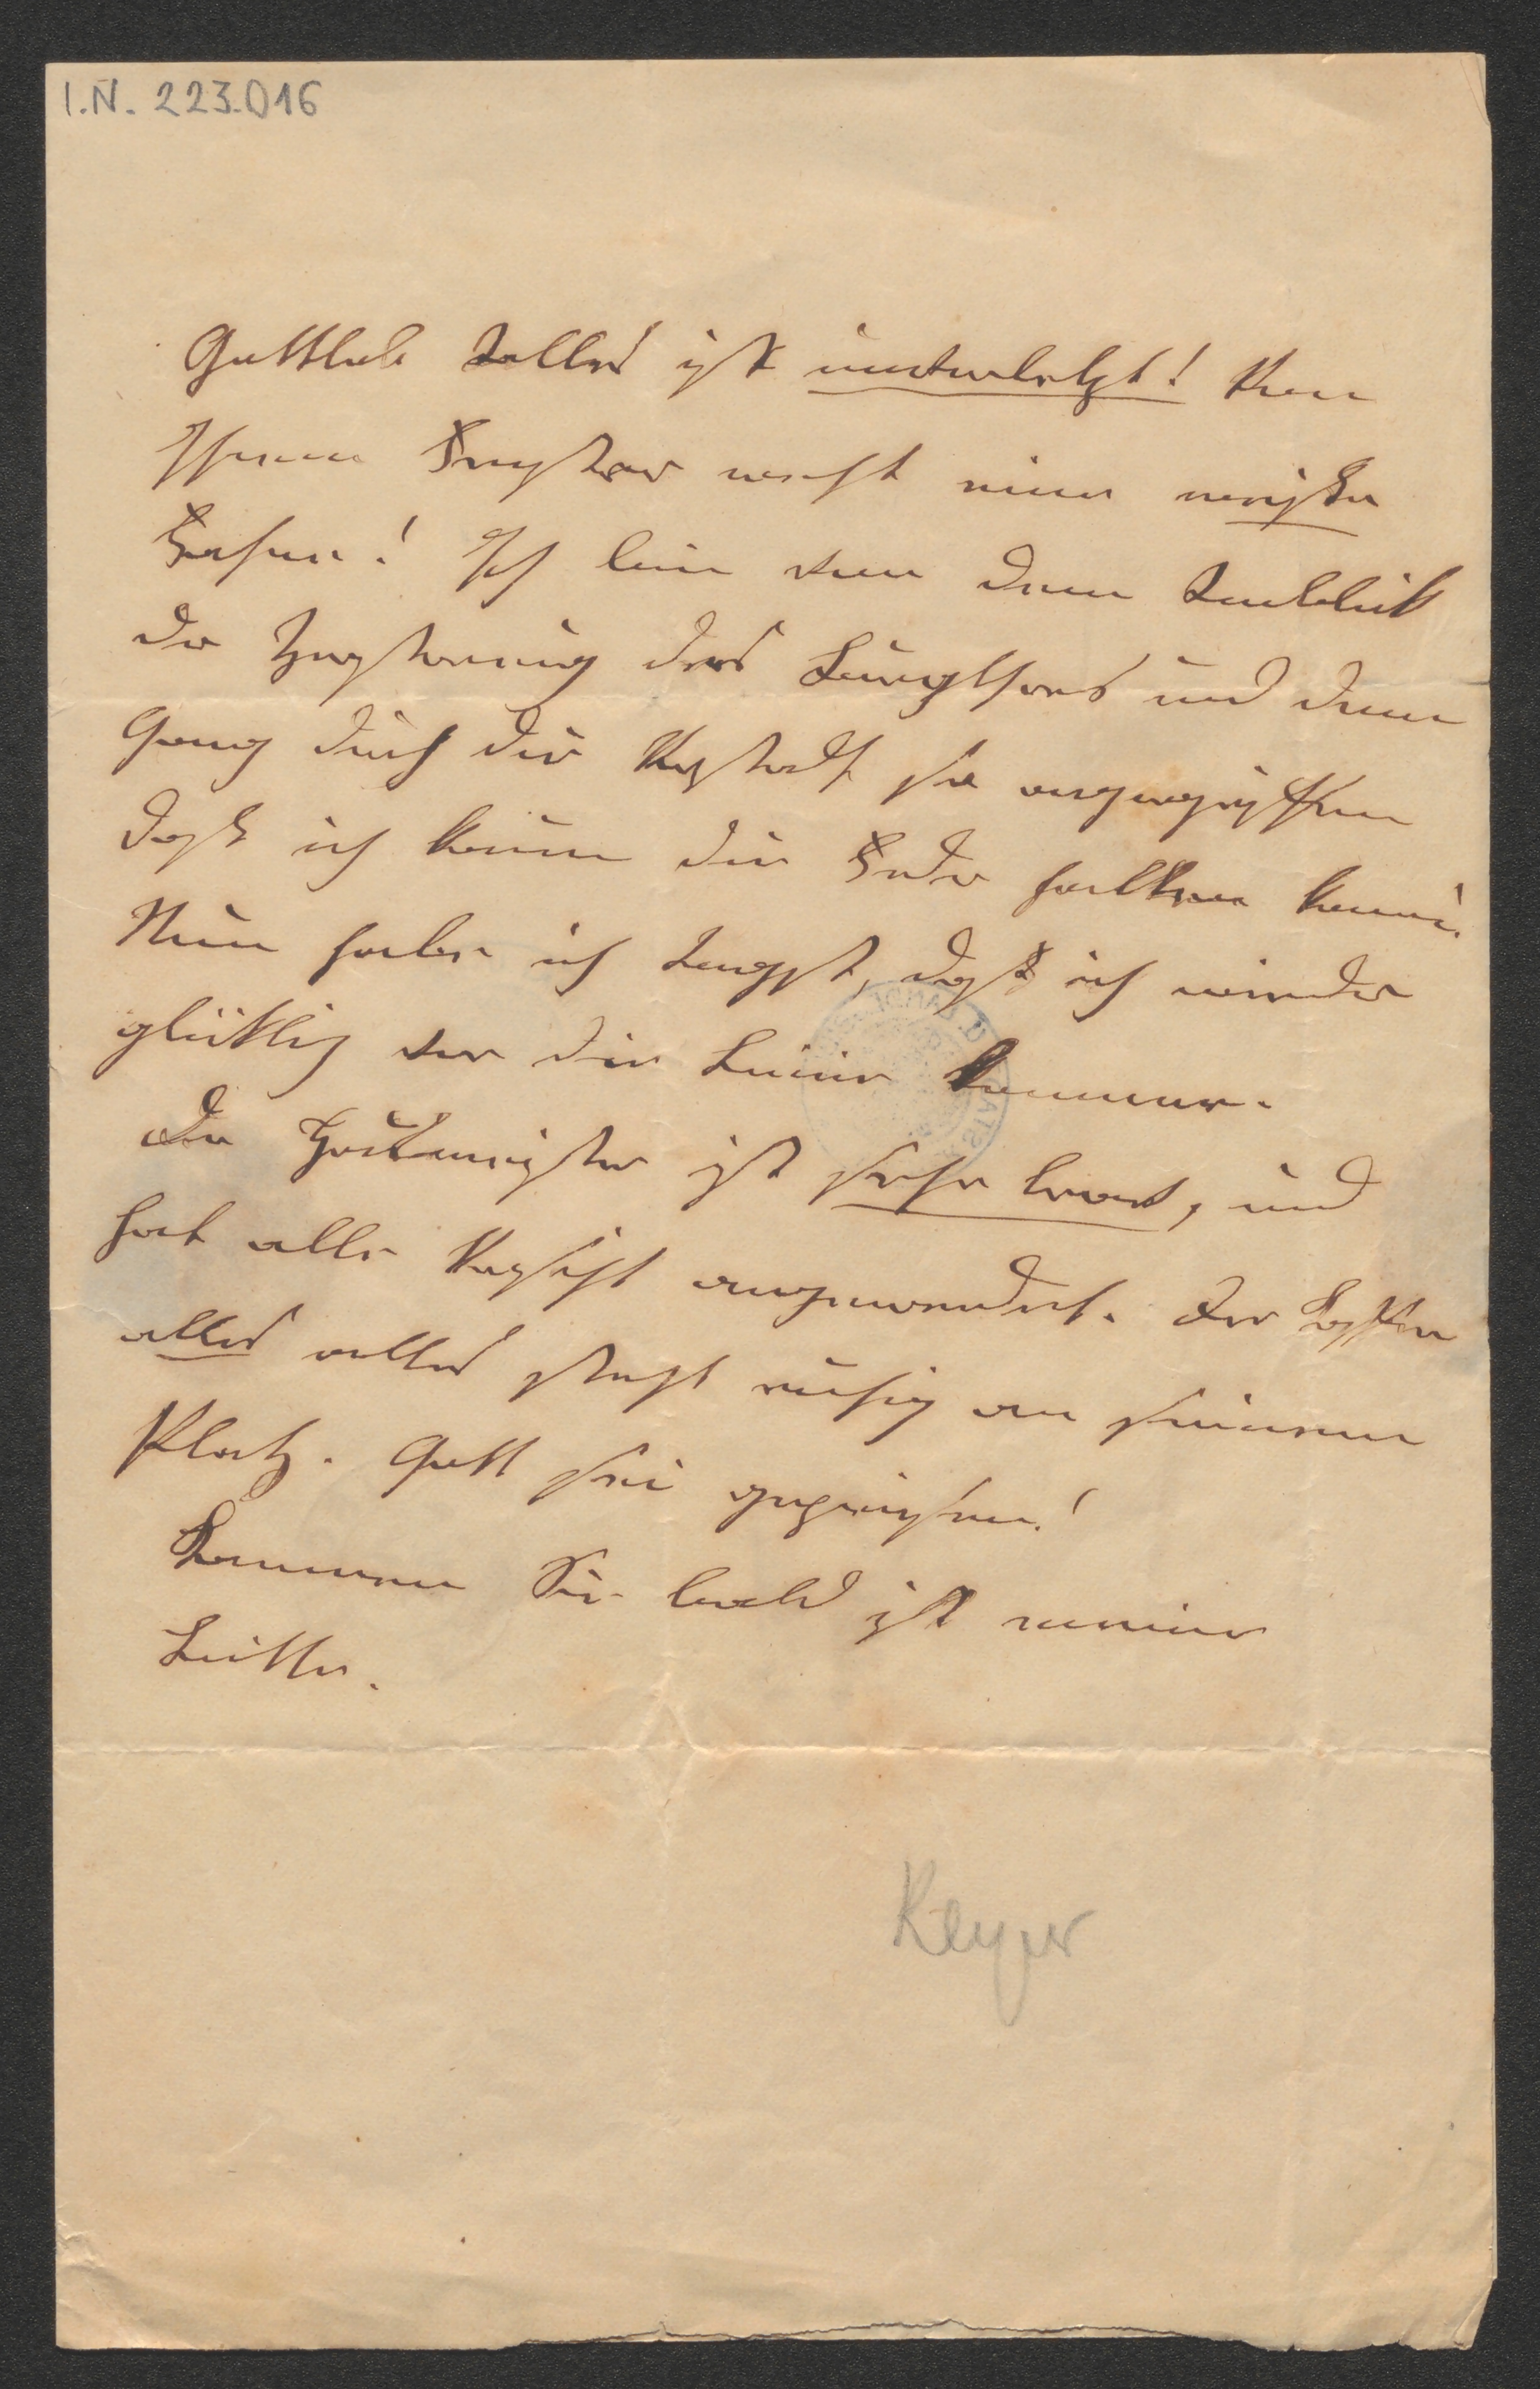 I.N. 223.016
Gottlob Alles ist unverletzt! Von
Ihrem Fenster weht eine weiße
Fahne! Ich bin von dem Anblick
der Zerstörung des Burgthores und dem
Gang durch die Vorstadt so angegriffen
daß ich kaum die Feder halten kann.
Nun habe ich Angst, daß ich wieder
glücklich vor die Linie komme.
Der Hausmeister ist sehr brav, und
hat alle Vorsicht angewendet. Der Kasten
alles alles steht ruhig an seinem
Platz. Gott sei gepriesen!
Kommen Sie bald ist meine
Bitte.